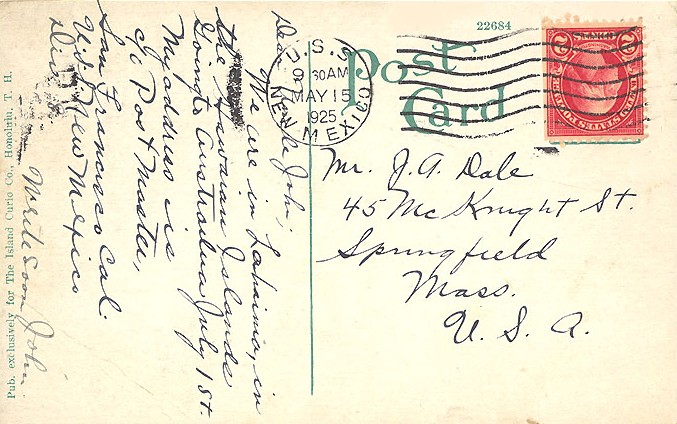 22684
Post
Card
U.S.S.
9 30AM
MAY 15
1925
NEW MEXICO
Mr. J. A. Dale
45 McKnight St.
Springfield
Mass.
U. S. A.
Dear John;
We are in Lahaina, in
the Hawaiian Islands
Going to Australia July 1st.
My address is
c/o Post Master,
San Francisco Cal.
U.S.S. New Mexico
Div
Write soon John.
Pub. exclusively for The Island Curio Co., Honolulu, T. H.
UNITED STATES POSTAGE
2 CENTS 2